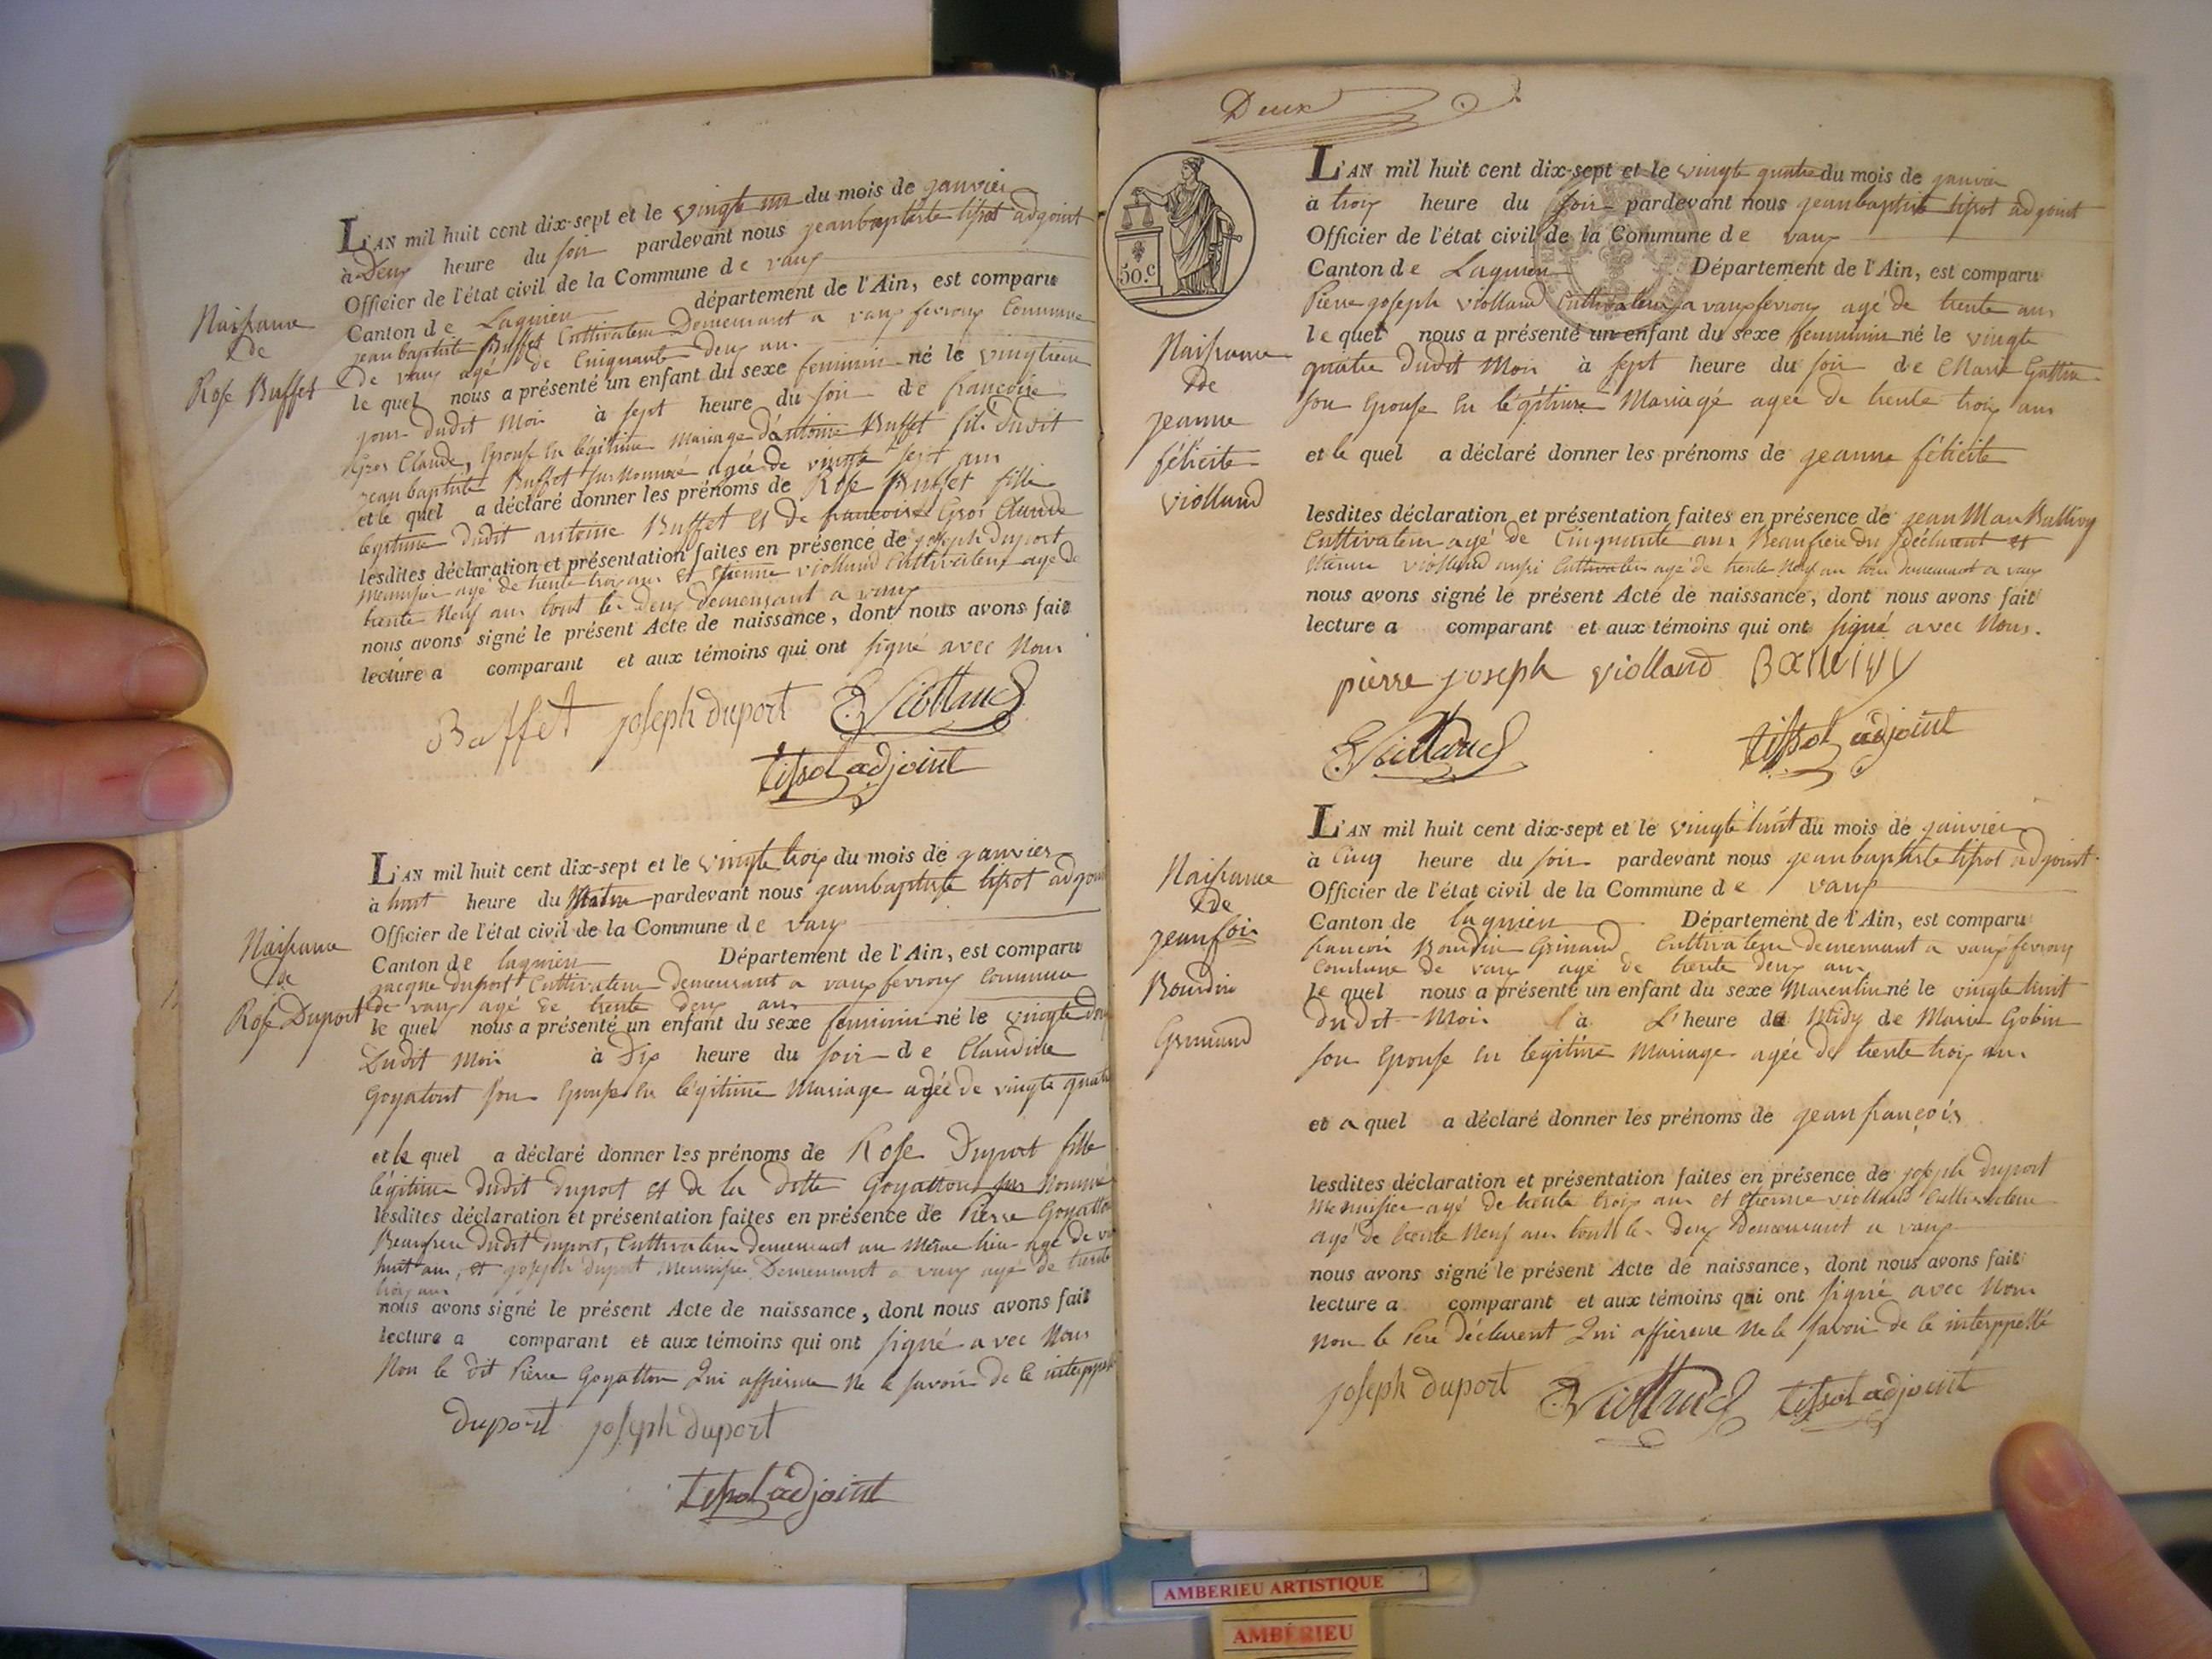 Naissance
de
Rose Buffet
L'AN mil huit cent dix-sept et le vingt un du mois de janvier
à Deux heure du soir pardevant nous jean baptiste tissot adjoint
Officier de l'état civil de la Commune de vaux
Canton de Lagnieu département de l'Ain, est comparu
jean baptiste Buffet Cultivateur Demeurant a vaux fevroux Commune
de vaux agé de Cinquante deux an.
le quel nous a présenté un enfant du sexe feminin né le vingtieme
jour dudit Moi à sept heure du soir de francoise
Gros Claude, Epouse en légitime mariage d'antoine Buffet fils dudit
jean baptiste Buffet surnommé agée de vingte sept ans
et le quel a déclaré donner les prénoms de Rose Buffet fille
legitime dudit antoine Buffet et de francoise Gros Claude
lesdites déclaration et présentation faites en présence de joseph duport
Menuisier agé de trente trois ans et Etienne viollaud Cultivateur agé de
trente Neuf ans tout les deux demeurant a vaux
nous avons signé le présent Acte de naissance, dont nous avons fait
lecture a comparant et aux témoins qui ont signé avec Nous
Buffet joseph duport E Viollaud
tissot adjoint
Naissance
de
Rose Duport
L'AN mil huit cent dix-sept et le vingte trois du mois de janvier
à huit heure du Matin pardevant nous jean baptiste tissot adjoint
Officier de l'état civil de la Commune de vaux
Canton de lagnieu Département de l'Ain, est comparu
jacque duport Cultivateur demeurant a vaux fevroux Commune
de vaux agé de trente deux ans
le quel nous a présenté un enfant du sexe feminin né le vingte deux
dudit Moi à Dix heure du soir de Claudine
Goyatont son Epouse en légitime Mariage agée de vingte quatre
et le quel a déclaré donner les prénoms de Rose Duport fille
légitime dudit duport et de la ditte Goyatton sus Nommé
lesdites déclaration et présentation faites en présence de Pierre Goyatton
Beaufrere dudit duport, Cultivateur demeurant au Même lieu agé de
huit ans, et joseph duport Menuisier Demeurant a vaux agé de trente
trois ans
nous avons signé le présent Acte de naissance, dont nous avons fait
lecture a comparant et aux témoins qui ont signé avec Nous
Non le dit Pierre Goyatton Qui affierme Ne le savoir de ce interppellé
duport joseph duport
tissot adjoint
Deux
50.c
Naissance
de
jeanne
félicite
viollaud
L'AN mil huit cent dix-sept et le vingte quatre du mois de janvier
à trois heure du soir pardevant nous jean baptiste tissot adjoint
Officier de l'état civil de la Commune de vaux
Canton de Lagnieu Département de l'Ain, est comparu
Pierre joseph viollaud Cultivateur a vaux fevroux agé de trente ans
le quel nous a présenté un enfant du sexe feminin né le vingte
quatre dudit Moi à sept heure du soir de Marie
son Epouse en légitime Mariagé agée de trente trois ans
et le quel a déclaré donner les prénoms de jeanne félicite
lesdites déclaration et présentation faites en présence de jean Mari
Cultivateur agé de Cinquante ans Beaufrere du déclarent et
Etienne viollaud aussi Cultivateur agé de trente Neuf an tous demeurant a vaux
nous avons signé le présent Acte de naissance, dont nous avons fait
lecture a comparant et aux témoins qui ont signé avec Nous.
pierre joseph viollaud
E Viollaud tissot adjoint
Naissance
de
jean fois
Bourdin
Grinand
L'AN mil huit cent dix-sept et le vingte huit du mois de janvier
à Cinq heure du soir pardevant nous jean baptiste tissot adjoint
Officier de l'état civil de la Commune de vaux
Canton de lagnieu Département de l'Ain, est comparu
francois Bourdin Grinand Cultivateur demeurant a vaux fevroux
Commune de vaux agé de trente deux ans
le quel nous a présenté un enfant du sexe Masculin né le vingte huit
dudit Moi à L'heure de Midy de Marie Gobin
son Epouse en legitime Mariage agée de trente trois ans
et a quel a déclaré donner les prénoms de jean françois
lesdites déclaration et présentation faites en présence de joseph duport
Menuisier agé de trente trois ans et Etienne viollaud Cultivateur
agé de trente Neuf ans tout les deux Demeurant a vaux
nous avons signé le présent Acte de naissance, dont nous avons fait
lecture a comparant et aux témoins qui ont signé avec Nous
Non le Pere déclarent Qui affierme Ne le savoir de ce interppellé
joseph duport E Viollaud tissot adjoint
AMBERIEU ARTISTIQUE
AMBÉRIEU